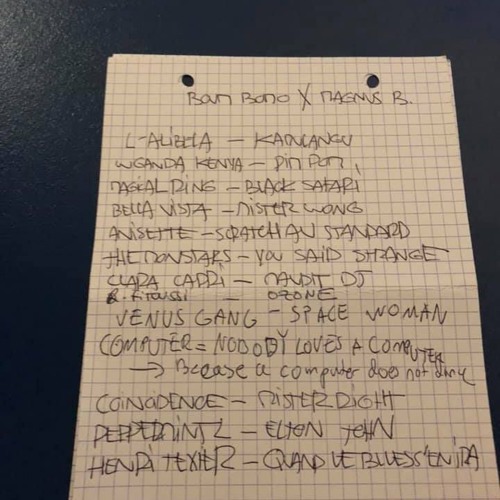 Bam Bano X MAGNUS B.
L-ALIZELA — KAOULANGU
WGANDA KENYA — Pim Pom
MAGICAL RING — BLACK SAFARI
BELLA VISTA — MISTER WONG
ANISETTE — SCRATCH AU STANDARD
THE MONSTARS — YOU SAID STRANGE
CLARA CAPRI — MAUDIT DJ
R. FITOUSSI — OZONE
VENUS GANG — SPACE WOMAN
COMPUTER = NOBODY LOVES A COMPUTER
→ Becease a computer does not dance
COINCIDENCE — MISTER RIGHT
PEPPERMINT 2 — ELTON JOHN
HENRI TEXIER — QUAND LE BLUES S'EN IRA